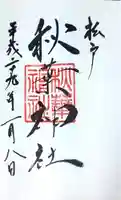 松戸
秋葉神社
平成二九年一月八日